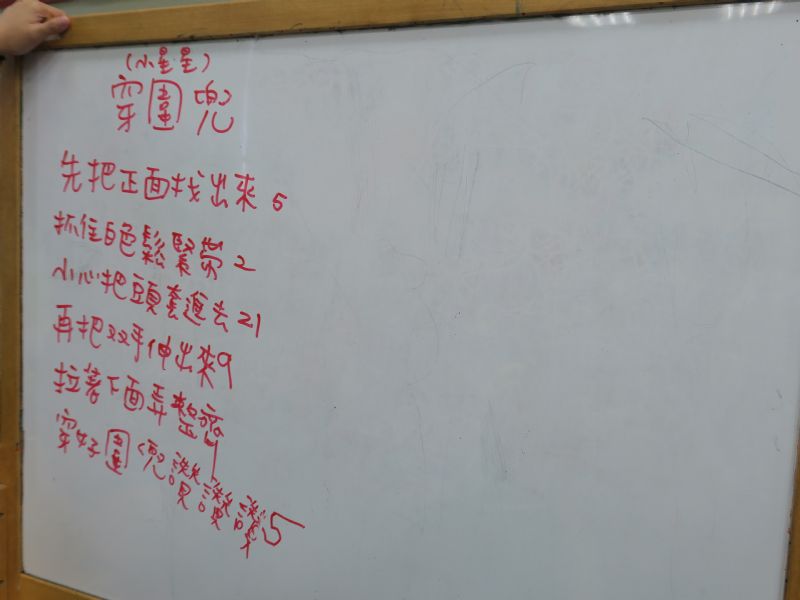 (小星星)
穿圍兜
先把正面找出來 5
抓住白色鬆緊帶 2
小心把頭套進去 21
再把双手伸出來 9
拉著下面弄整齊 1
穿好圍兜讚讚讚 5